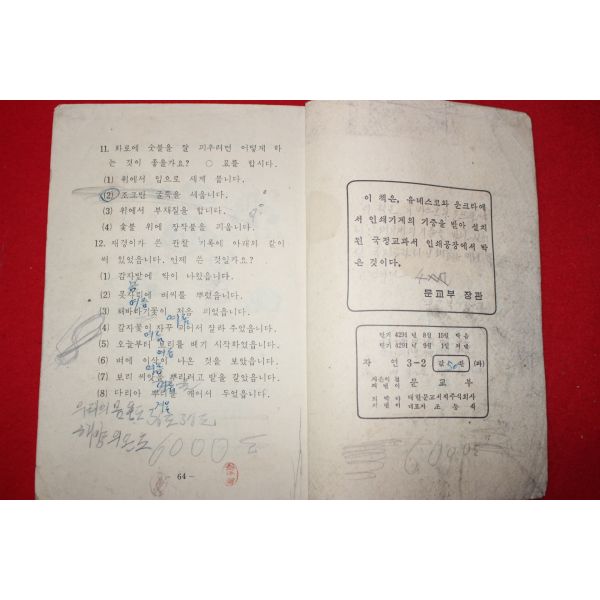 11. 화로에 숯불을 잘 피우려면 어떻게 하
는 것이 좋을가요? ○ 표를 합시다.
(1) 위에서 입으로 세게 붑니다.
(2) 조그만 굴뚝을 세웁니다.
(3) 위에서 부채질을 합니다.
(4) 숯불 위에 장작불을 피웁니다.
12. 재경이가 쓴 관찰 기록이 아래의 같이
써 있었읍니다. 언제 쓴 것일가요?
(1) 감자밭에 싹이 나왔읍니다.
봄
(2) 못자리에 벼씨를 뿌렸읍니다.
여름
(3) 해바라기꽃이 처음 피었읍니다.
여름
(4) 감자꽃이 자꾸 피어서 잘라 주었읍니다.
여름
(5) 오늘부터 보리를 베기 시작하였읍니다.
여름
(6) 벼에 이삭이 나온 것을 보았읍니다.
(7) 보리 씨앗을 뿌리려고 밭을 갈았읍니다.
(8) 다리아 뿌리를 캐어서 두었읍니다.
겨울
우리의 몸 온도
해양의 온도 6000도
64 —
이 책은, 유네스코와 운크라에
서 인쇄기계의 기증을 받아 설치
된 국정교과서 인쇄공장에서 박
은 것이다.
문교부 장관
단기 4291 년 8월 10일 박음
단기 4291 년 9월 1일 펴냄
자 연 3-2 값 50환
문 교 부
대한문교서적주식회사
대표자
6000도